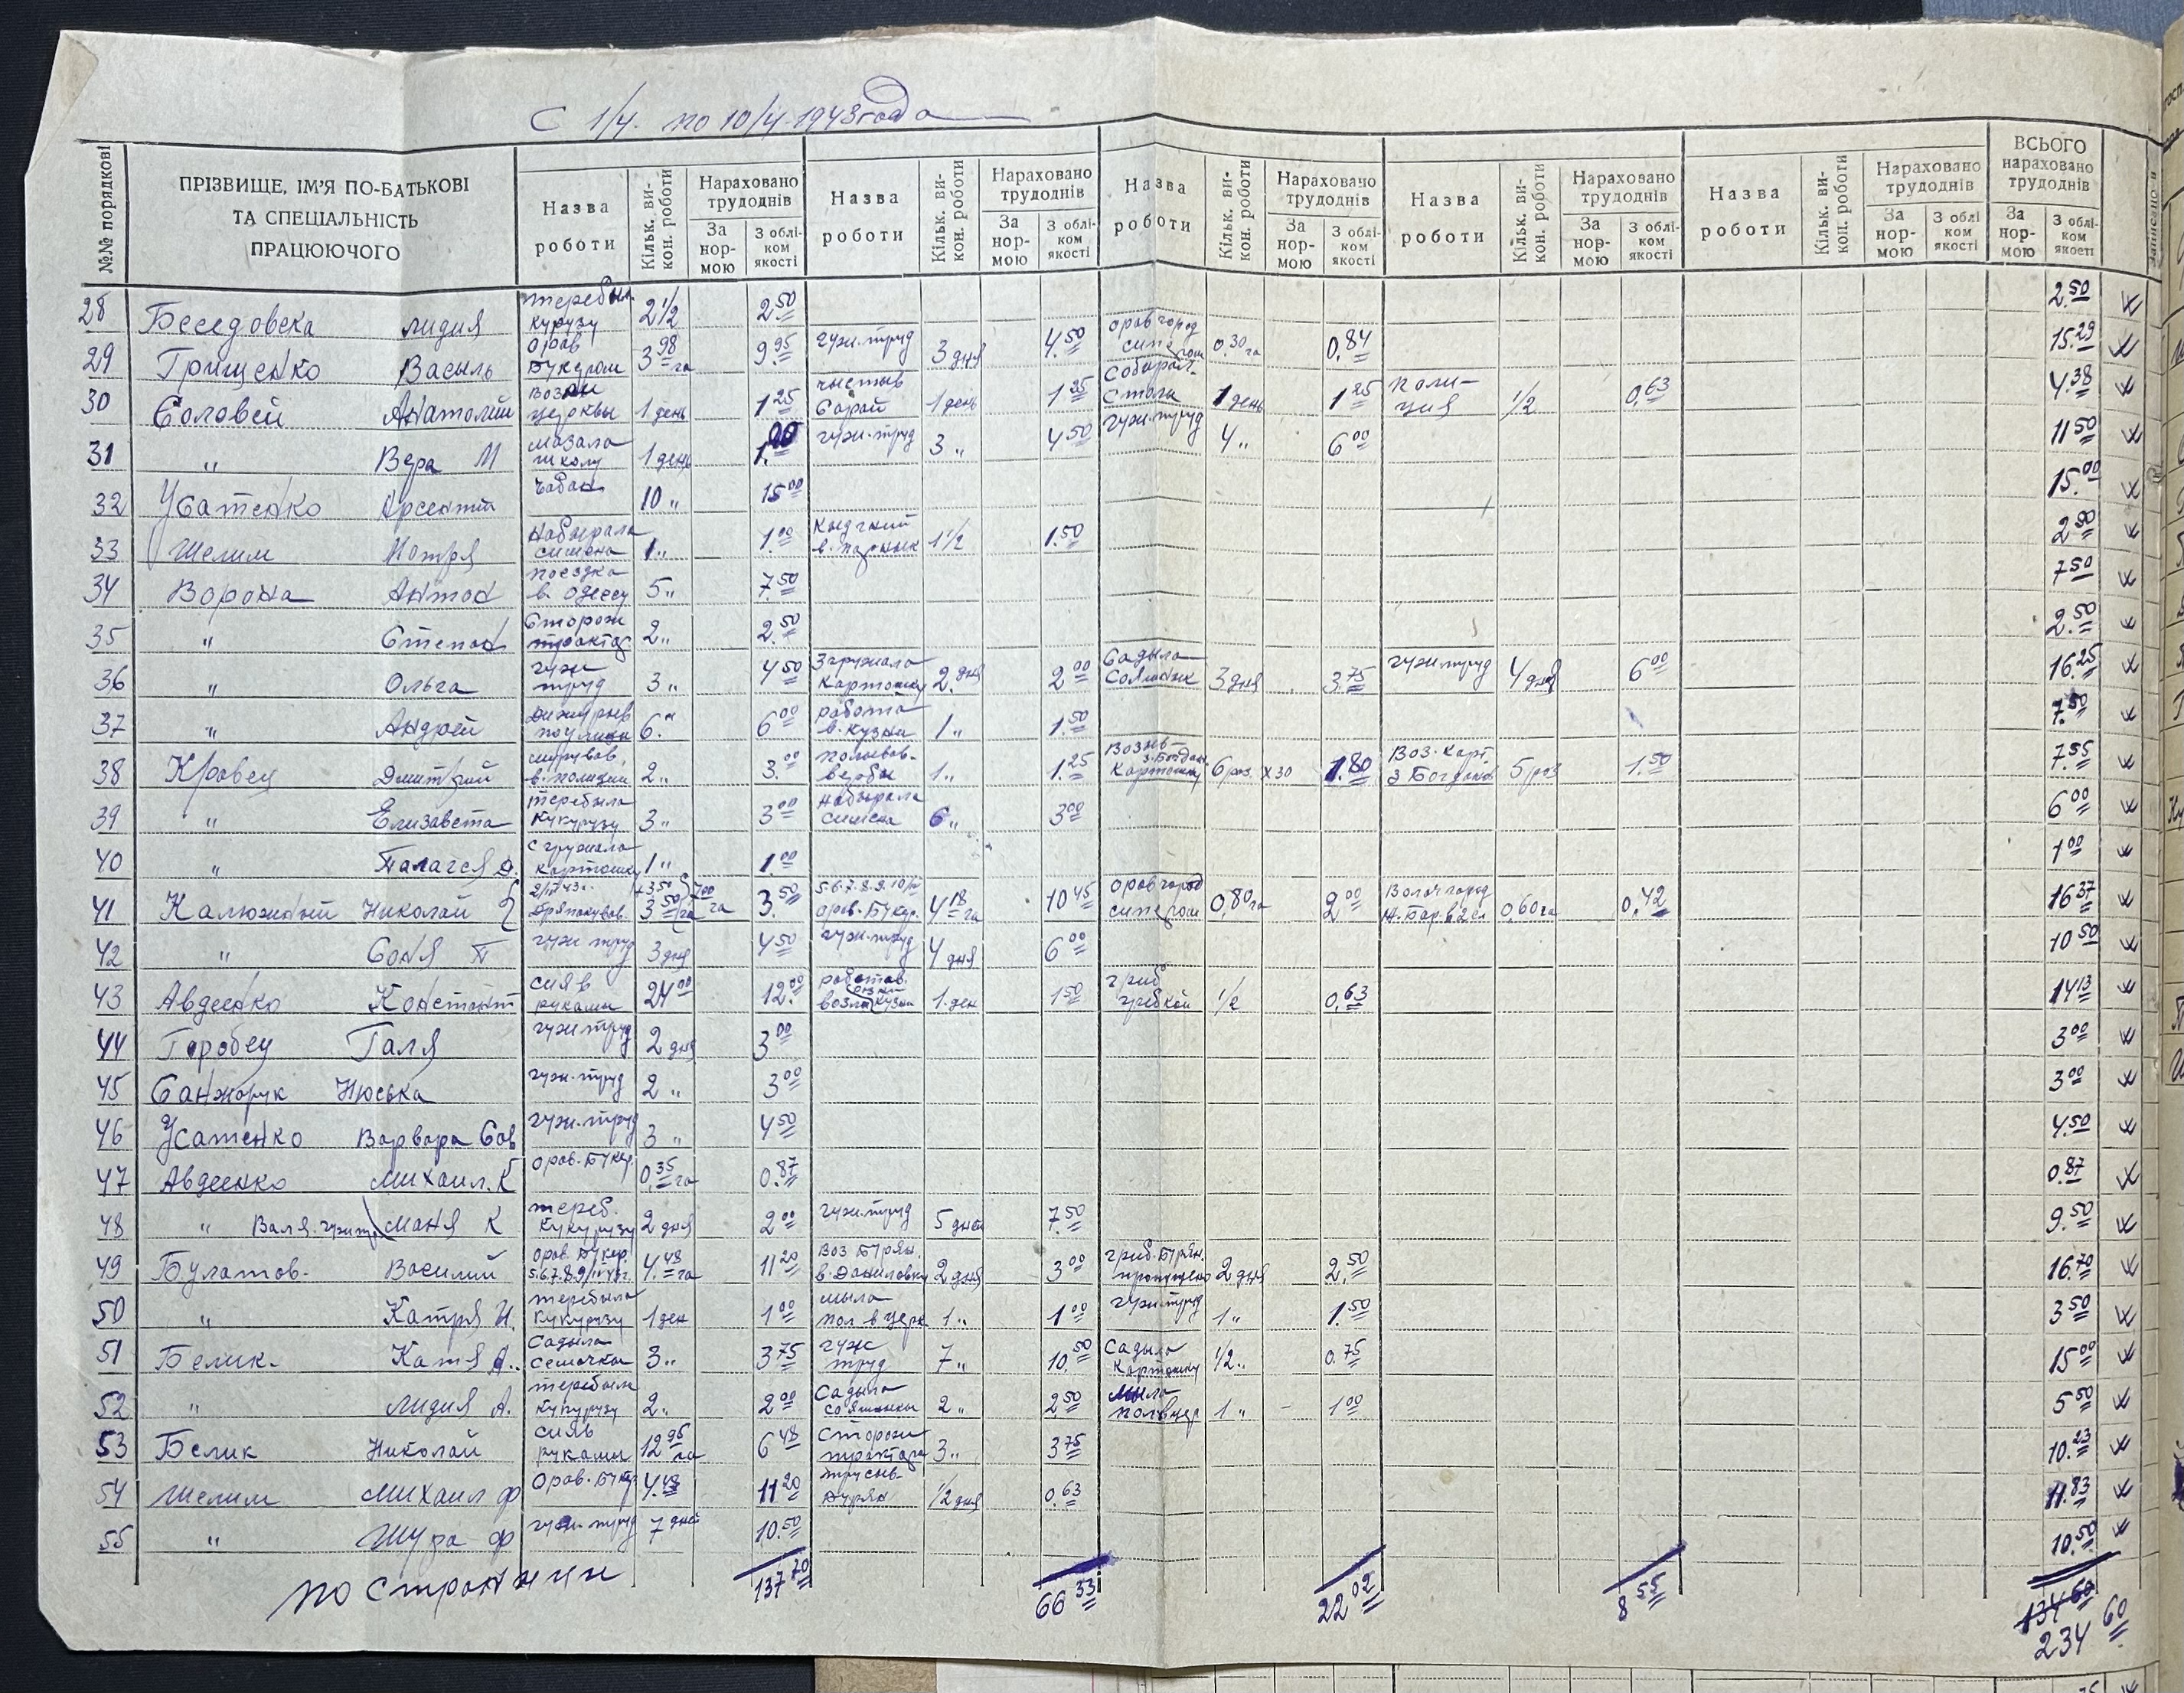 С 1/4. по 10/4-1943 года
№№ порядкові
ПРІЗВИЩЕ, ІМ'Я ПО-БАТЬКОВІ
ТА СПЕЦІАЛЬНІСТЬ
ПРАЦЮЮЧОГО
Назва роботи
Кільк. ви-кон. роботи
Нараховано трудоднів
За нор-мою
З облі-ком якості
Назва роботи
Кільк. ви-кон. роботи
Нараховано трудоднів
За нор-мою
З облі-ком якості
Назва роботи
Кільк. ви-кон. роботи
Нараховано трудоднів
За нор-мою
З облі-ком якості
Назва роботи
Кільк. ви-кон. роботи
Нараховано трудоднів
За нор-мою
З облі-ком якості
Назва роботи
Кільк. ви-кон. роботи
Нараховано трудоднів
За нор-мою
З облі-ком якості
ВСЬОГО нараховано трудоднів
За нор-мою
З облі-ком якості
28 Беседовска Лидия кукурузу 2 1/2 2.50 2.50
29 Грищенко Василь орав Букером 3.98 га 9.95 гуж. труд 3 дня 4.50 орав город 0.30 га 0.84 15.29
30 Соловей Анатолий возыв церквы 1 день 1.25 чыстыв сарай 1 день 1.25 столы 1 день 1.25 поли-ция 1/2 0.63 4.38
31 " Вера М мазала школу 1 день 1.00 гуж. труд 3 " 4.50 гуж. труд 4 " 6.00 11.50
32 Усатенко Арсентий чабан 10 " 15.00 15.00
33 Шелим Мотря набырала 1 " 1.00 1 1/2 1.50
34 Ворона Антон поездка в Одессу 5 " 7.50 7.50
35 " Степан Сторож 2 " 2.50 2.50
36 " Ольга гуж труд 3 " 4.50 картошку 2 дня 2.00 Садыла 3 дня 3.75 гуж. труд 4 дня 6.00 16.25
37 " Андрей 6 " 6.00 работа в кузни 1 " 1.50 7.50
38 Кравец Дмитрий в полиции 2 " 3.00 вербы 1 " 1.25 картошку 6 раз х30 1.80 Воз. карт. 5 раз 1.50 7.55
39 " Елизавета теребыла кукурузу 3 " 3.00 набырала 6 " 3.00 6.00
40 " Палагея сгружала картошку 1 " 1.00 1.00
41 Калюжный Николай 3.50 га 7.00 га 3.50 5.6.7.8.9.10/IV орав. Букер. 4.18 га 10.45 орав город 0.80 га 2.00 0.60 га 0.42 16.37
42 " Соня П гуж труд 3 дня 4.50 гуж. труд 4 дня 6.00 10.50
43 Авдеенко Констант сияв руками 24.00 12.00 работав. возле кузни 1 ден 1.50 1/2 0.63 14.13
44 Горобец Галя гуж. труд 2 дня 3.00 3.00
45 Санжарук Нюська гуж. труд 2 " 3.00 3.00
46 Усатенко Варвара Сав гуж. труд 3 " 4.50 4.50
47 Авдеенко Михаил. К орав. Букер. 0.35 га 0.87 0.87
48 " Маня К тереб. кукурузу 2 дня 2.00 гуж. труд 5 дней 7.50 9.50
49 Булатов. Василий орав. Букер. 4.48 га 11.20 Воз Бурян. в Даниловку 2 дня 3.00 2 дня 2.50 16.70
50 " Катря И. теребыла кукурузу 1 ден 1.00 мыла пол в церк 1 " 1.00 гуж. труд 1 " 1.50 3.50
51 Белик. Катя А. Садыла 3 " 3.75 гуж труд 7 " 10.50 Садыла картошку 1/2 " 0.75 15.00
52 " Лидия А. теребыла кукурузу 2 " 2.00 Садыла 2 " 2.50 мыла 1 " 1.00 5.50
53 Белик Николай сияв руками 12.95 га 6.48 сторож трактора 3 " 3.75 10.23
54 Шелим Михаил Ф орав. Букер 4.48 11.20 1/2 дня 0.63 11.83
55 " Шура Ф гуж. труд 7 дней 10.50 10.50
по странички 137.70 66.33 22.02 8.55 134.60
234.60